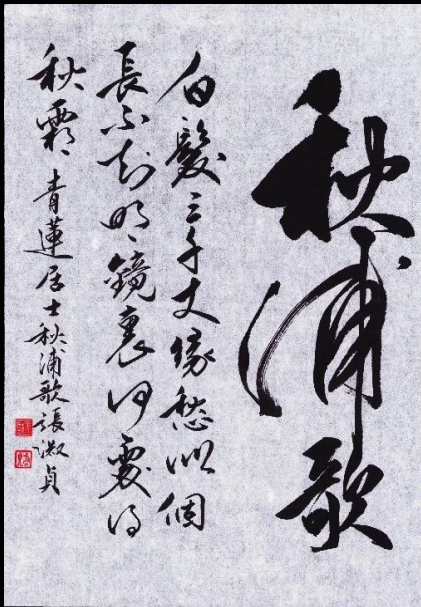 秋浦歌
白髮三千丈緣愁似個
長不知明鏡裏何處得
秋霜 青蓮居士秋浦歌張淑貞